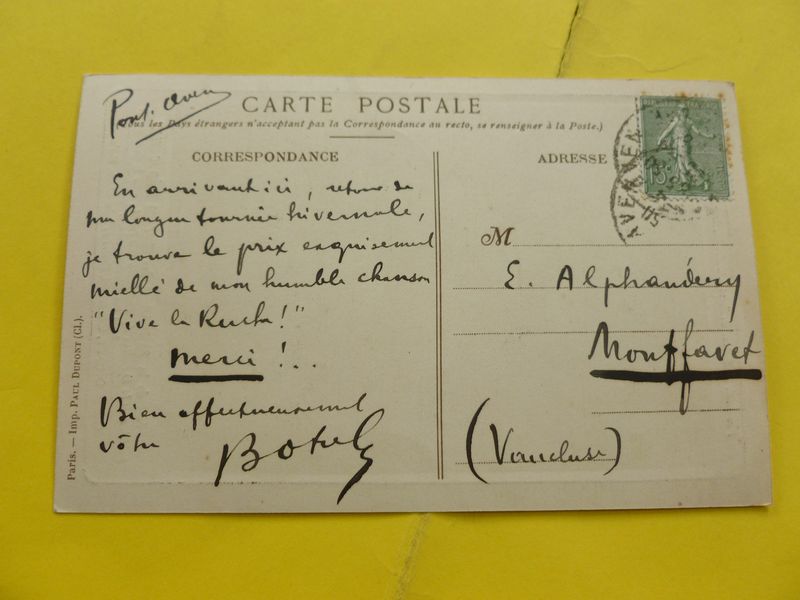 Pont-Aven
CARTE POSTALE
(Tous les Pays étrangers n'acceptant pas la Correspondance au recto, se renseigner à la Poste.)
CORRESPONDANCE
En arrivant ici, retour de
ma longue tournée hivernale,
je trouve le prix exquisement
miellé de mon humble chanson
"Vive la Ruche!"
merci !..
Bien affectueusement
vôtre
Botrel
ADRESSE
M
E. Alphandéry
Montfavet
(Vaucluse)
AVEN
15c
Paris. — Imp. PAUL DUPONT (Cl.).